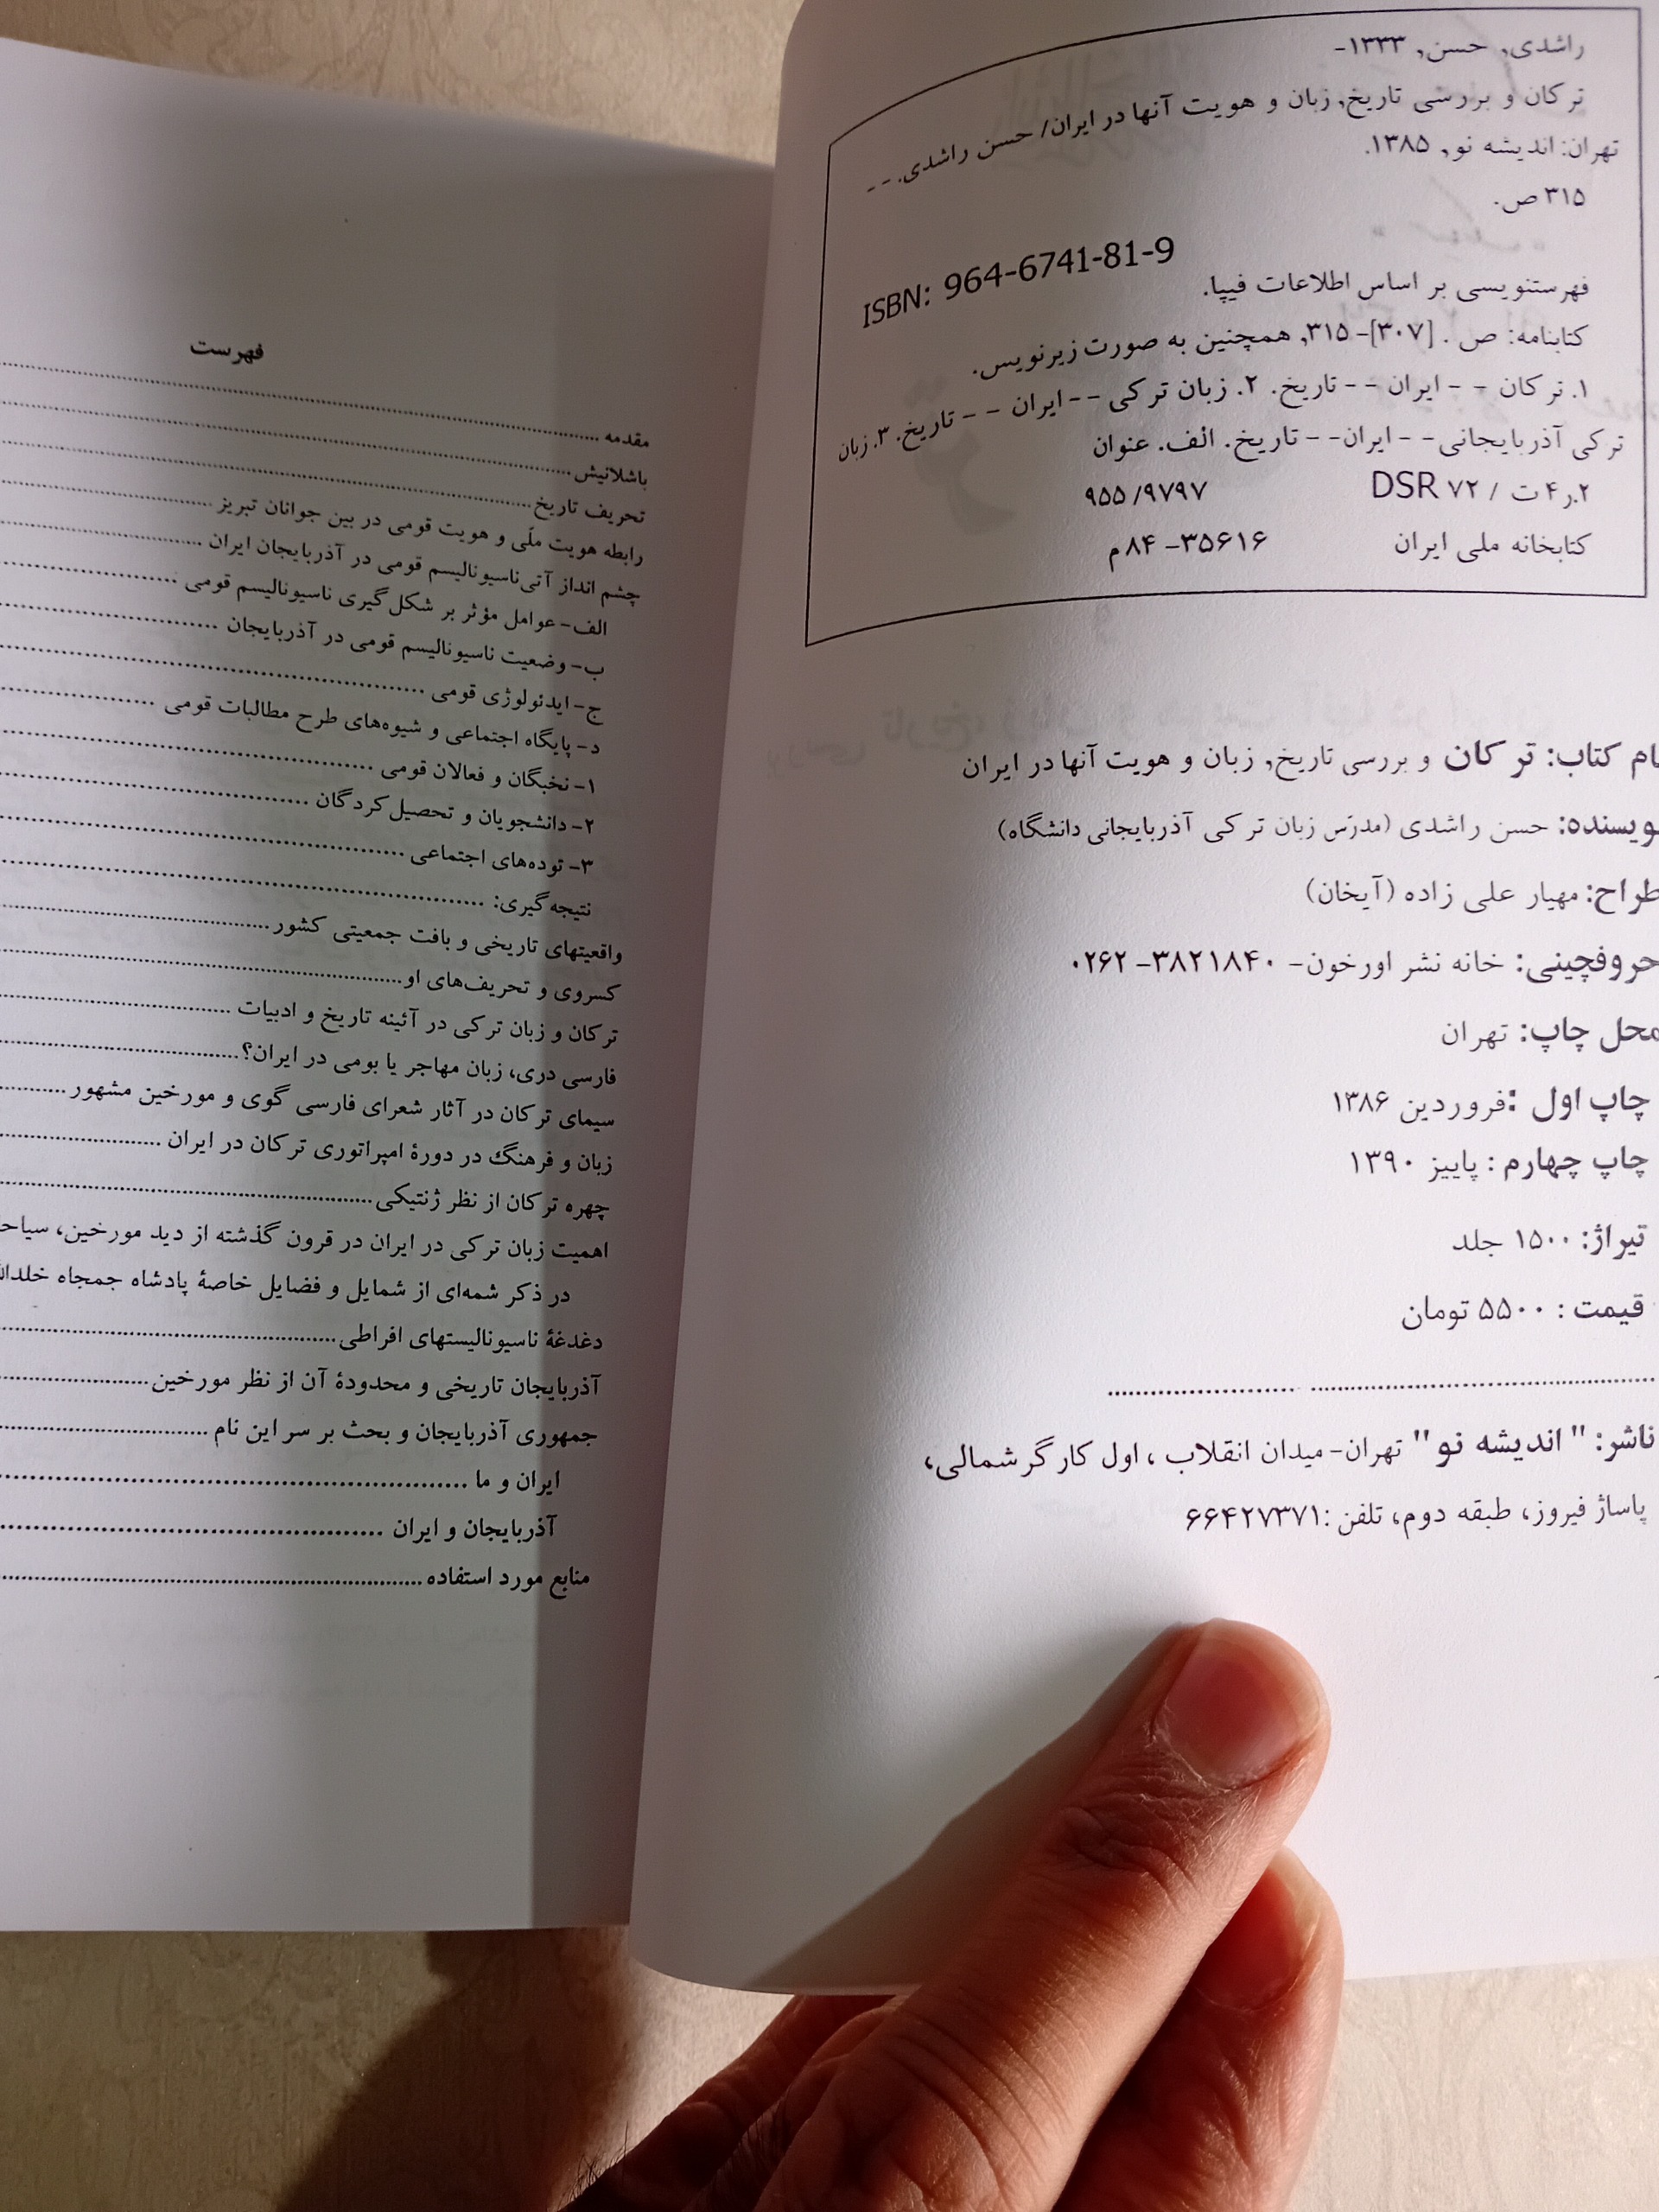 راشدی, حسن, ۱۳۳۳-
ترکان و بررسی تاریخ, زبان و هویت آنها در ایران/ حسن راشدی. - -
تهران: اندیشه نو, ۱۳۸۵.
۳۱۵ ص.
ISBN: 964-6741-81-9
فهرستنویسی بر اساس اطلاعات فیپا.
کتابنامه: ص . [۳۰۷]- ۳۱۵, همچنین به صورت زیرنویس.
۱. ترکان - - ایران - - تاریخ. ۲. زبان ترکی - - ایران - - تاریخ. ۳. زبان
ترکی آذربایجانی- - ایران- - تاریخ. الف. عنوان
۲.ر۴ ت / ۷۲ DSR ۹۵۵/۹۷۹۷
کتابخانه ملی ایران ۳۵۶۱۶- ۸۴ م
نام کتاب: ترکان و بررسی تاریخ, زبان و هویت آنها در ایران
نویسنده: حسن راشدی (مدرّس زبان ترکی آذربایجانی دانشگاه)
طراح: مهیار علی زاده (آیخان)
حروفچینی: خانه نشر اورخون- ۳۸۲۱۸۴۰- ۰۲۶۲
محل چاپ: تهران
چاپ اول :فروردین ۱۳۸۶
چاپ چهارم : پاییز ۱۳۹۰
تیراژ: ۱۵۰۰ جلد
قیمت : ۵۵۰۰ تومان
ناشر: " اندیشه نو" تهران- میدان انقلاب ، اول کارگر شمالی،
پاساژ فیروز، طبقه دوم، تلفن :۶۶۴۲۷۳۷۱
فهرست
مقدمه
باشلانیش
تحریف تاریخ
رابطه هویت ملّی و هویت قومی در بین جوانان تبریز
چشم انداز آتی ناسیونالیسم قومی در آذربایجان ایران
الف- عوامل مؤثر بر شکل گیری ناسیونالیسم قومی
ب- وضعیت ناسیونالیسم قومی در آذربایجان
ج- ایدئولوژی قومی
د- پایگاه اجتماعی و شیوه‌های طرح مطالبات قومی
۱- نخبگان و فعالان قومی
۲- دانشجویان و تحصیل کردگان
۳- توده‌های اجتماعی
نتیجه گیری:
واقعیتهای تاریخی و بافت جمعیتی کشور
کسروی و تحریف‌های او
ترکان و زبان ترکی در آئینه تاریخ و ادبیات
فارسی دری، زبان مهاجر یا بومی در ایران؟
سیمای ترکان در آثار شعرای فارسی گوی و مورخین مشهور
زبان و فرهنگ در دورهٔ امپراتوری ترکان در ایران
چهره ترکان از نظر ژنتیکی
اهمیت زبان ترکی در ایران در قرون گذشته از دید مورخین،
در ذکر شمه‌ای از شمایل و فضایل خاصهٔ پادشاه جمجاه
دغدغهٔ ناسیونالیستهای افراطی
آذربایجان تاریخی و محدودهٔ آن از نظر مورخین
جمهوری آذربایجان و بحث بر سر این نام
ایران و ما
آذربایجان و ایران
منابع مورد استفاده